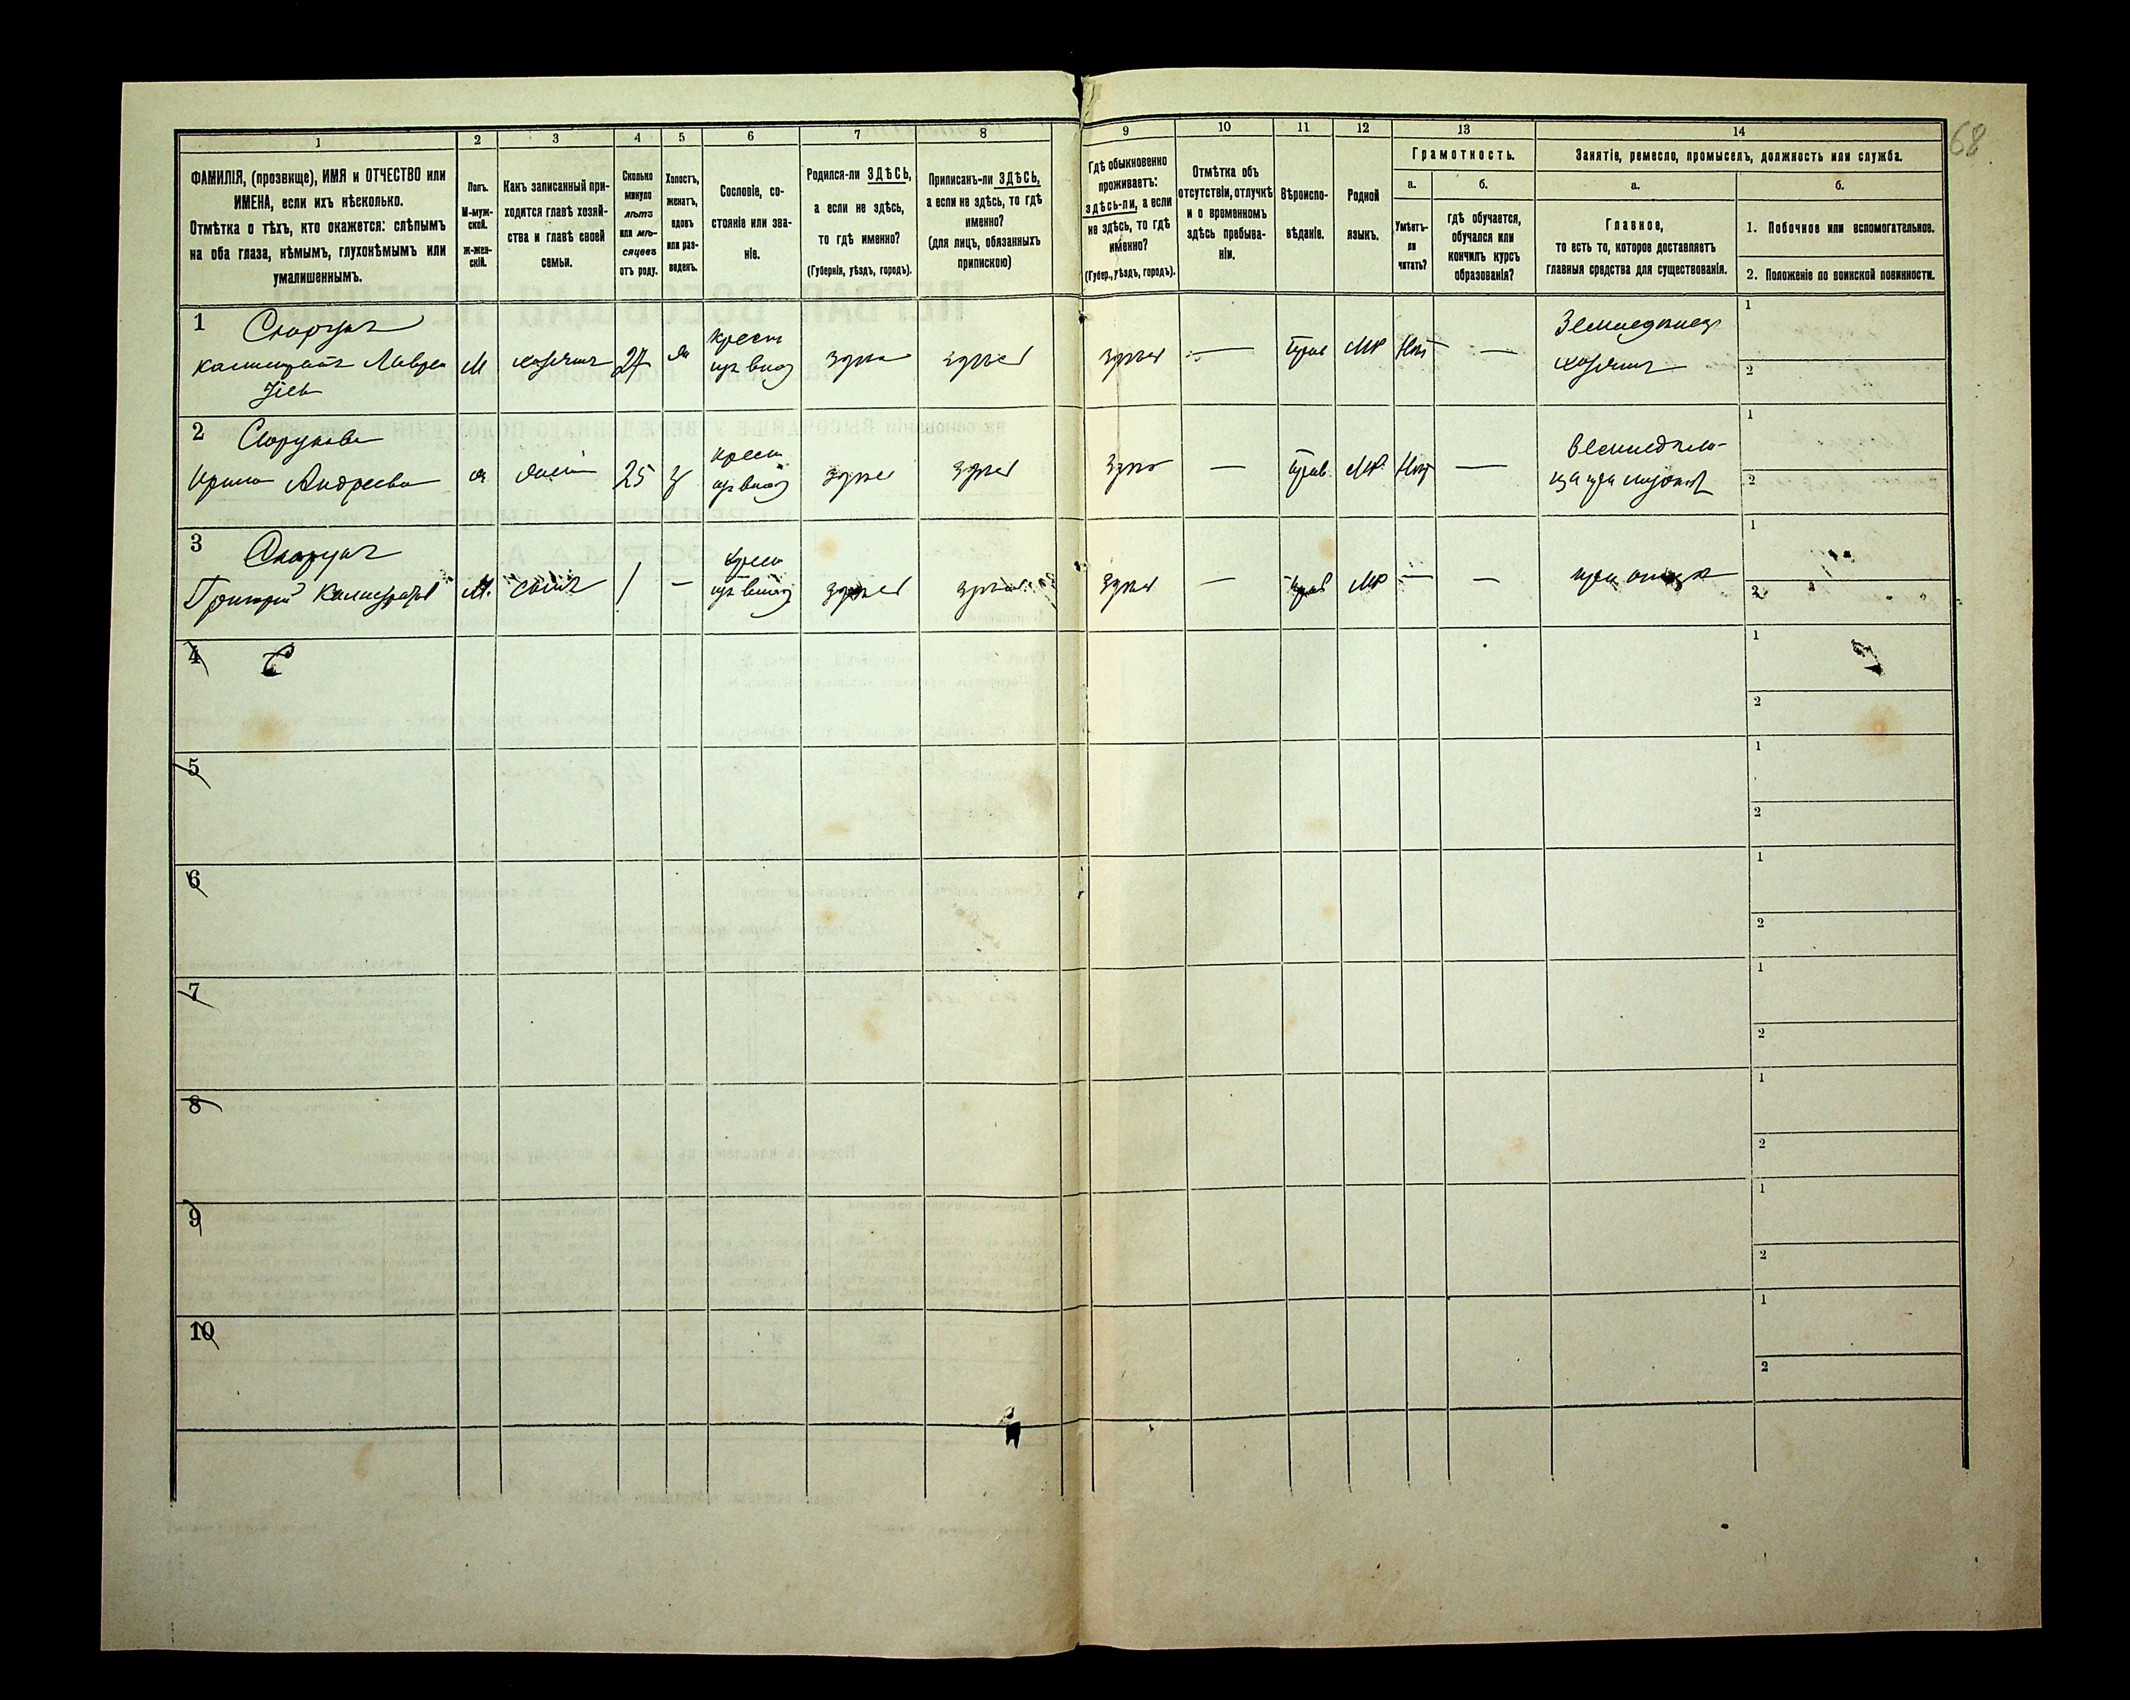 68
1 2 3 4 5 6 7 8 9 10 11 12 13 14
ФАМИЛІЯ, (прозвище), ИМЯ и ОТЧЕСТВО или
ИМЕНА, если ихъ нѣсколько.
Отмѣтка о тѣхъ, кто окажется: слѣпымъ
на оба глаза, нѣмымъ, глухонѣмымъ или
умалишеннымъ.
Полъ.
М-муж-
ской.
ж-жен-
скій.
Какъ записанный при-
ходится главѣ хозяй-
ства и главѣ своей
семьи.
Сколько
минуло
лѣтъ
или мѣ-
сяцевъ
отъ роду.
Холостъ,
женатъ,
вдовъ
или раз-
веденъ.
Сословіе, со-
стояніе или зва-
ніе.
Родился-ли ЗДѢСЬ,
а если не здѣсь,
то гдѣ именно?
(Губернія, уѣздъ, городъ).
Приписанъ-ли ЗДѢСЬ,
а если не здѣсь, то гдѣ
именно?
(для лицъ, обязанныхъ
припискою)
Гдѣ обыкновенно
проживаетъ:
здѣсь-ли, а если
не здѣсь, то гдѣ
именно?
(Губер., уѣздъ, городъ).
Отмѣтка объ
отсутствіи, отлучкѣ
и о временномъ
здѣсь пребыва-
ніи.
Вѣроиспо-
вѣданіе.
Родной
языкъ.
Грамотность.
а. б.
Умѣетъ-
ли
читать?
гдѣ обучается,
обучался или
кончилъ курсъ
образованія?
Занятіе, ремесло, промыселъ, должность или служба.
а. б.
Главное,
то есть то, которое доставляетъ
главныя средства для существованія.
1. Побочное или вспомогательное.
2. Положеніе по воинской повинности.
1
М хозяинъ 27 ж крест
здѣсь здѣсь здѣсь — прав МР Нѣт —
хозяинъ
1
2
2
Андреева ж жена 25 з крест
здѣсь здѣсь здѣсь — прав МР Нѣт —
1
2
3
Григорій М. сынъ 1 — крест
здѣсь здѣсь здѣсь — прав МР — — при отцѣ
1
2
4
1
2
5
1
2
6
1
2
7
1
2
8
1
2
9
1
2
10
1
2